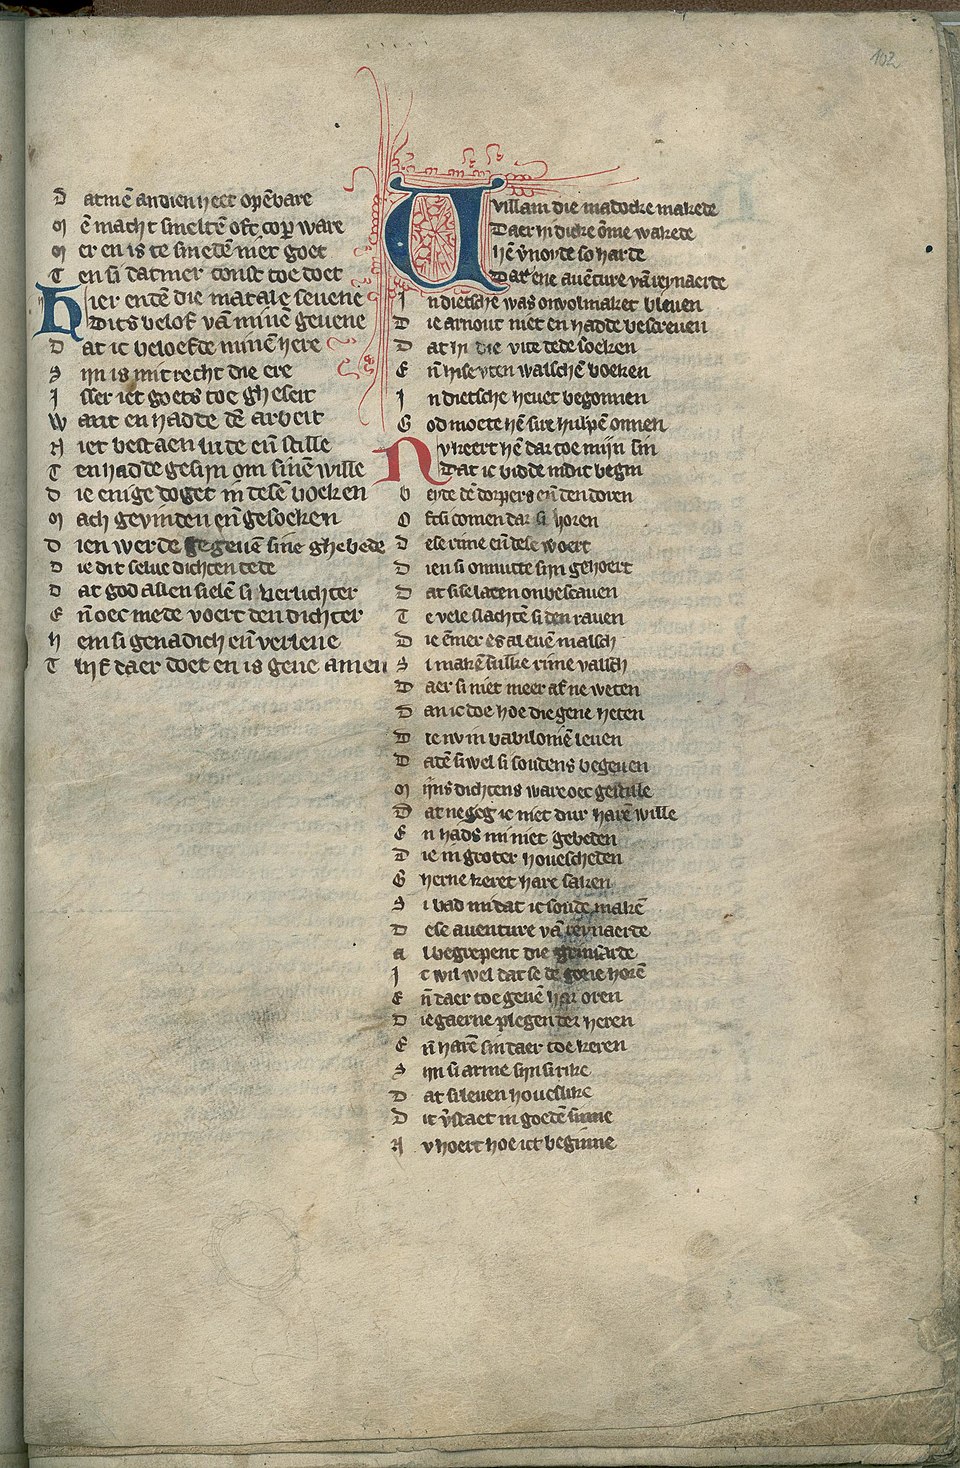 102
D atmē andien heet opēbare
M ē macht smeltē oft cop ware
M er en is te smedēn met goet
T en si datmer const toe doet
Hier endē die matale seuene
Dits belof vā minē geuene
D at ic beloefde minē here
S iin is mit recht die ere
I sser iet goets toe gheseit
W ant en hadde dē arbeit
N iet bestaen lude eñ stille
T en hadde gesijn om sinē wille
D ie enige doget in desē boeken
M ach gevinden eñ gesoeken
D ien werde gegeuē sine ghebede
D ie dit selue dichten dede
D at god allen sielē si verlichter
E ñ oec mede voert den dichter
H em si genadich eñ verlene
T lijf daer doet en is gene amen
Villam die madocke makede
Daer hi dicke ōme wakede
Hē v̄noyde so harde
Dat ene auēture vā reynaerde
I n dietschē was onvolmaket bleuen
D ie arnout niet en hadde bescreuen
D at hi die vite dede soeken
E ñ hise vten walschē boeken
I n dietsche heuet begonnen
G od moete hē sire hulpē onnen
Nv keert hē daer toe mijn sin
Dat ic bidde indit begin
B eyde dē dorpers eñ den doren
O fsi comen dar si horen
D ese rime eñ dese woert
D ien si onnutte sijn gehoert
D at sise laten onbescauen
T e vele slachtē si den rauen
D ie ēmer es al euē malsch
S i makē sulke rime valsch
D aer si niet meer af ne weten
D an ic doe hoe die gene heten
D ie nv in babiloniē leuen
D adē si wel si soudens begeuen
M ijns dichtens ware oec gestille
D at ne seg ic niet dur harē wille
E n hads mi niet gebeden
D ie in groter houescheden
G herne keret hare saken
S i bad mi dat ic soude makē
D ese auenture vā reynaerde
A l begrepent die grinsarde
I c wil wel dat se de goeie horē
E ñ daer toe geuē har oren
D ie gaerne plegen der heren
E ñ harē sin daer toe keren
S ijn si arme sijn si rike
D at si leuen houeslike
D it v̄staet in goedē sinne
N v hoert hoe ict beginne